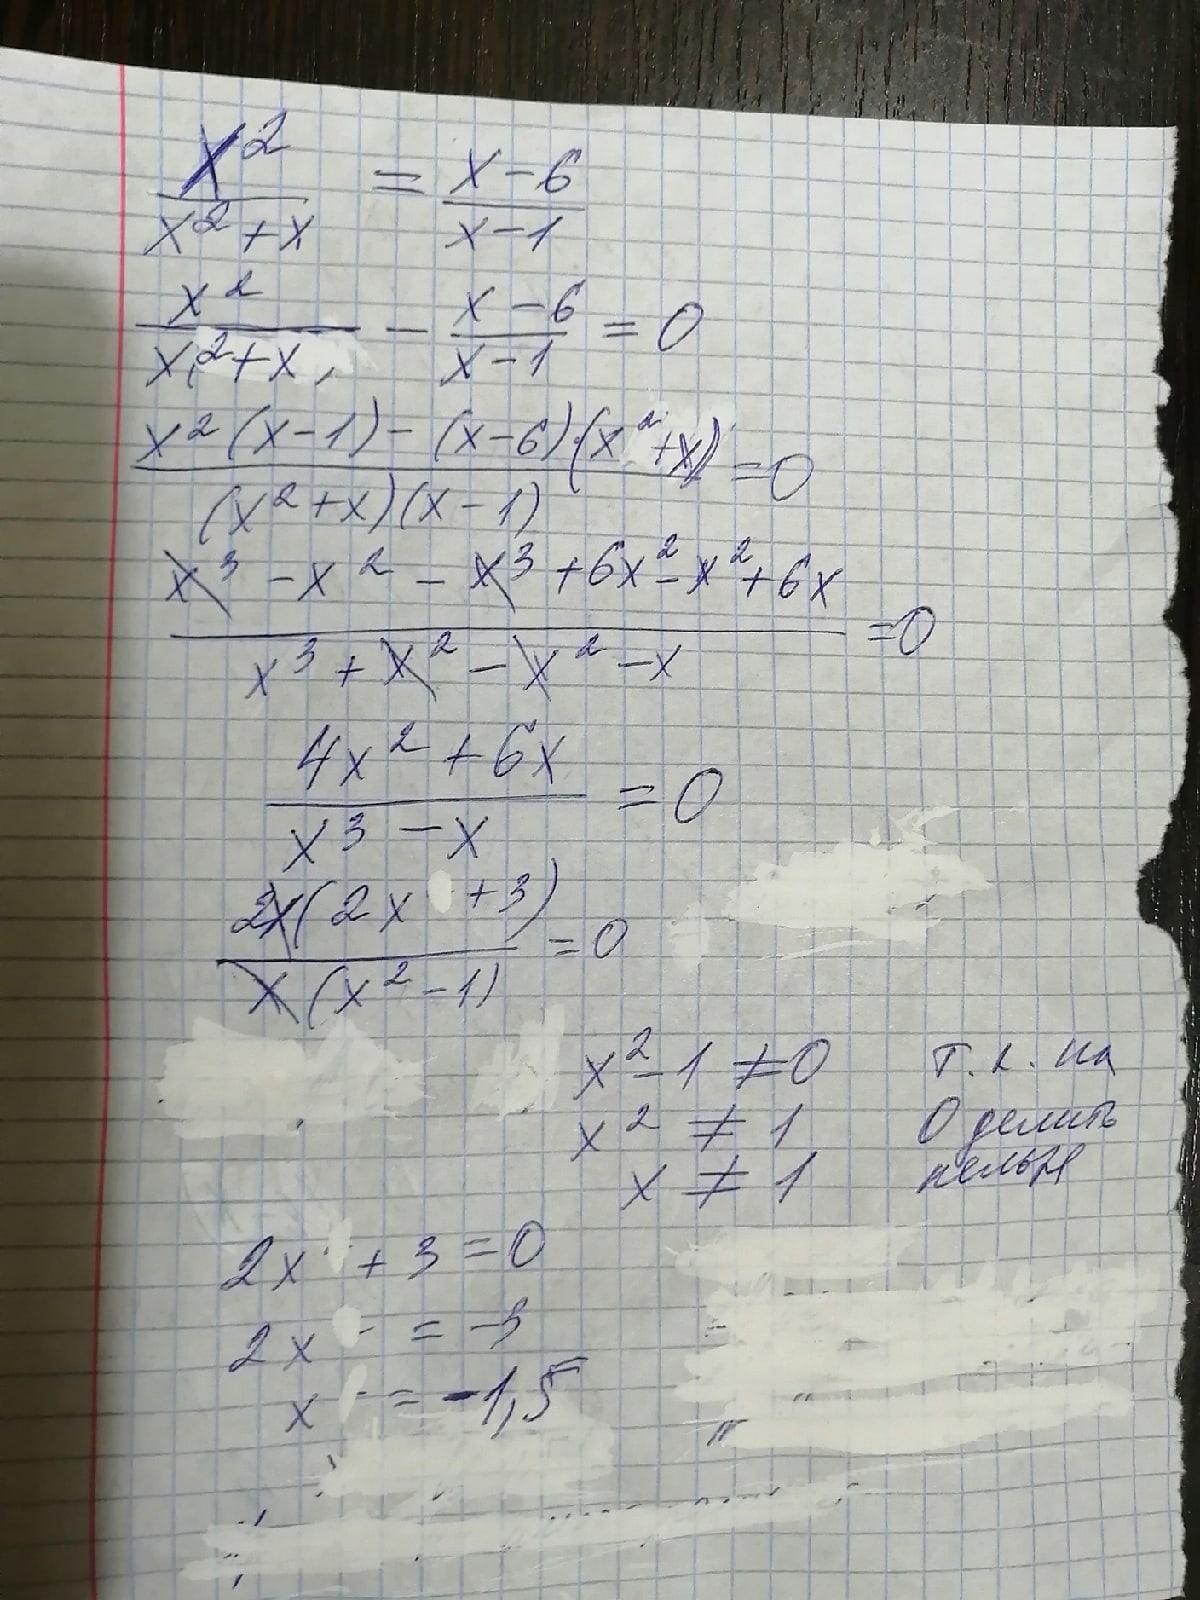 x² / x²+x = x-6 / x-1
x² / x²+x - x-6 / x-1 = 0
x²(x-1)-(x-6)·(x²+x) / (x²+x)(x-1) = 0
x³ - x² - x³ + 6x² - x² + 6x / x³ + x² - x² - x = 0
4x² + 6x / x³ - x = 0
2x(2x + 3) / x(x² - 1) = 0
x² - 1 ≠ 0 т.к. на
x² ≠ 1 0 делить
x ≠ 1 нельзя
2x + 3 = 0
2x = -3
x = -1,5